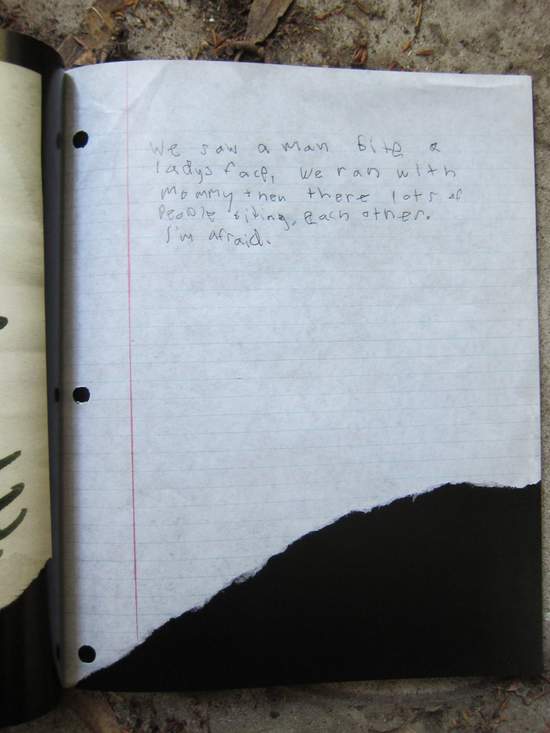 We saw a man Bite a
ladys face, we ran with
mommy then there lots of
People Biting, each other.
I'm afraid.